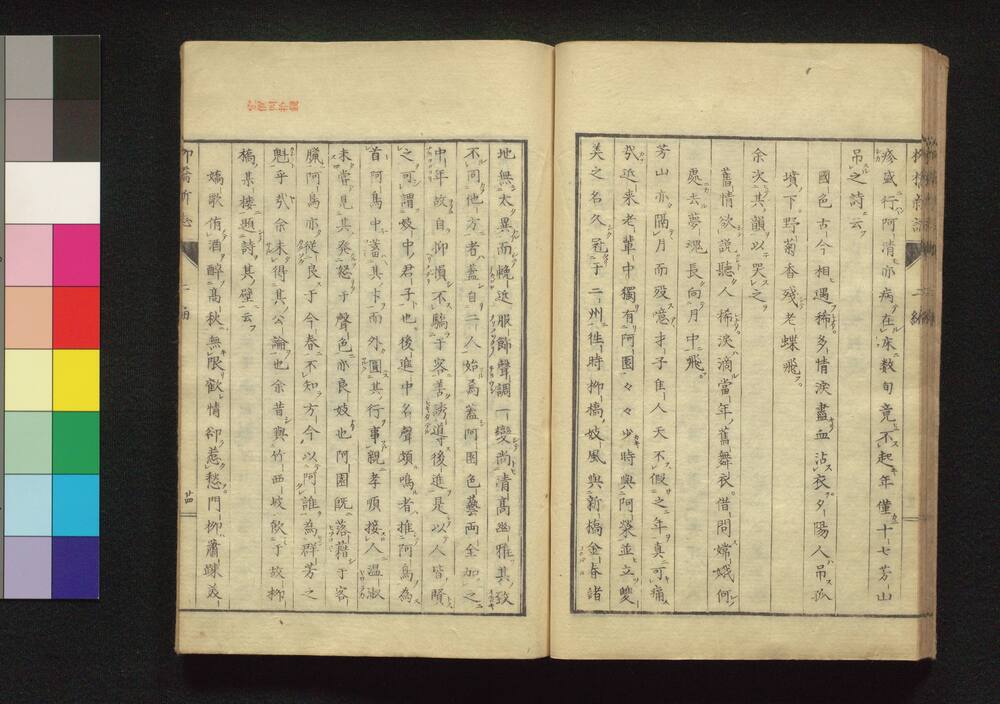 疹盛行阿清亦病在床数旬竟不起年僅十七芳山
吊之詩云
國色古今相遇稀多情淚盡血沾衣夕陽人吊孤
墳下野菊香殘老蝶飛
余次其韻以哭之
舊情欲説聽人稀淚滴當年舊舞衣借問嫦娥何
處去夢魂長向月中飛
芳山亦隔月而歿憶才子佳人天不假之年真可痛
哉近来老輩中獨有阿園々々少時與阿榮並立雙
美之名久冠于二州往時柳橋妓風與新橋金春諸
地無太異而輓近服飾聲調一變尚清高幽雅其致
不同他方者蓋自二人始焉蓋阿園色藝両全加之
中年故自抑損不驕于容善誘導後進是以人皆賢
之可謂妓中君子也後進中名聲頗鳴者推阿鳥為
首阿鳥中蓄其才而外圓其行事親孝順接人温淑
未嘗見其発怒于聲色亦良妓也阿園既落藉于客
臘阿鳥亦從良于今春不知方今以阿誰為群芳之
魁乎哉余未得其公論也余昔與竹西坡飲于故柳
橋某樓題詩其壁云
嬌歌侑酒醉高秋無限歡情卻惹愁門柳蕭疎美
柳橋新誌
二編